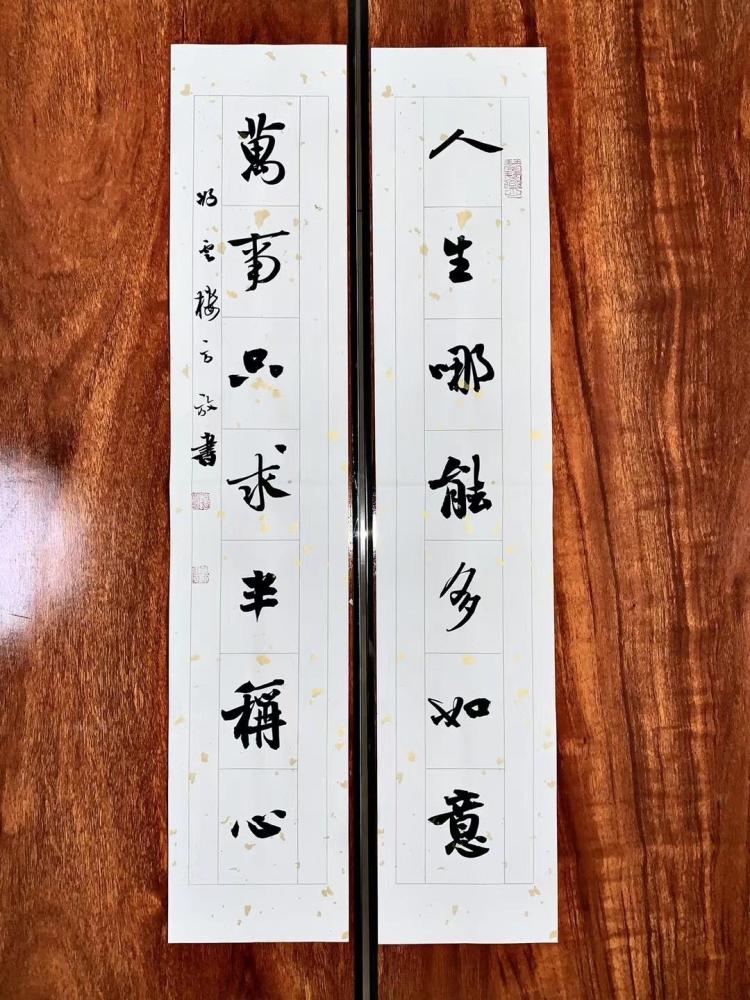 人生哪能多如意
萬事只求半稱心
雲樓方放書